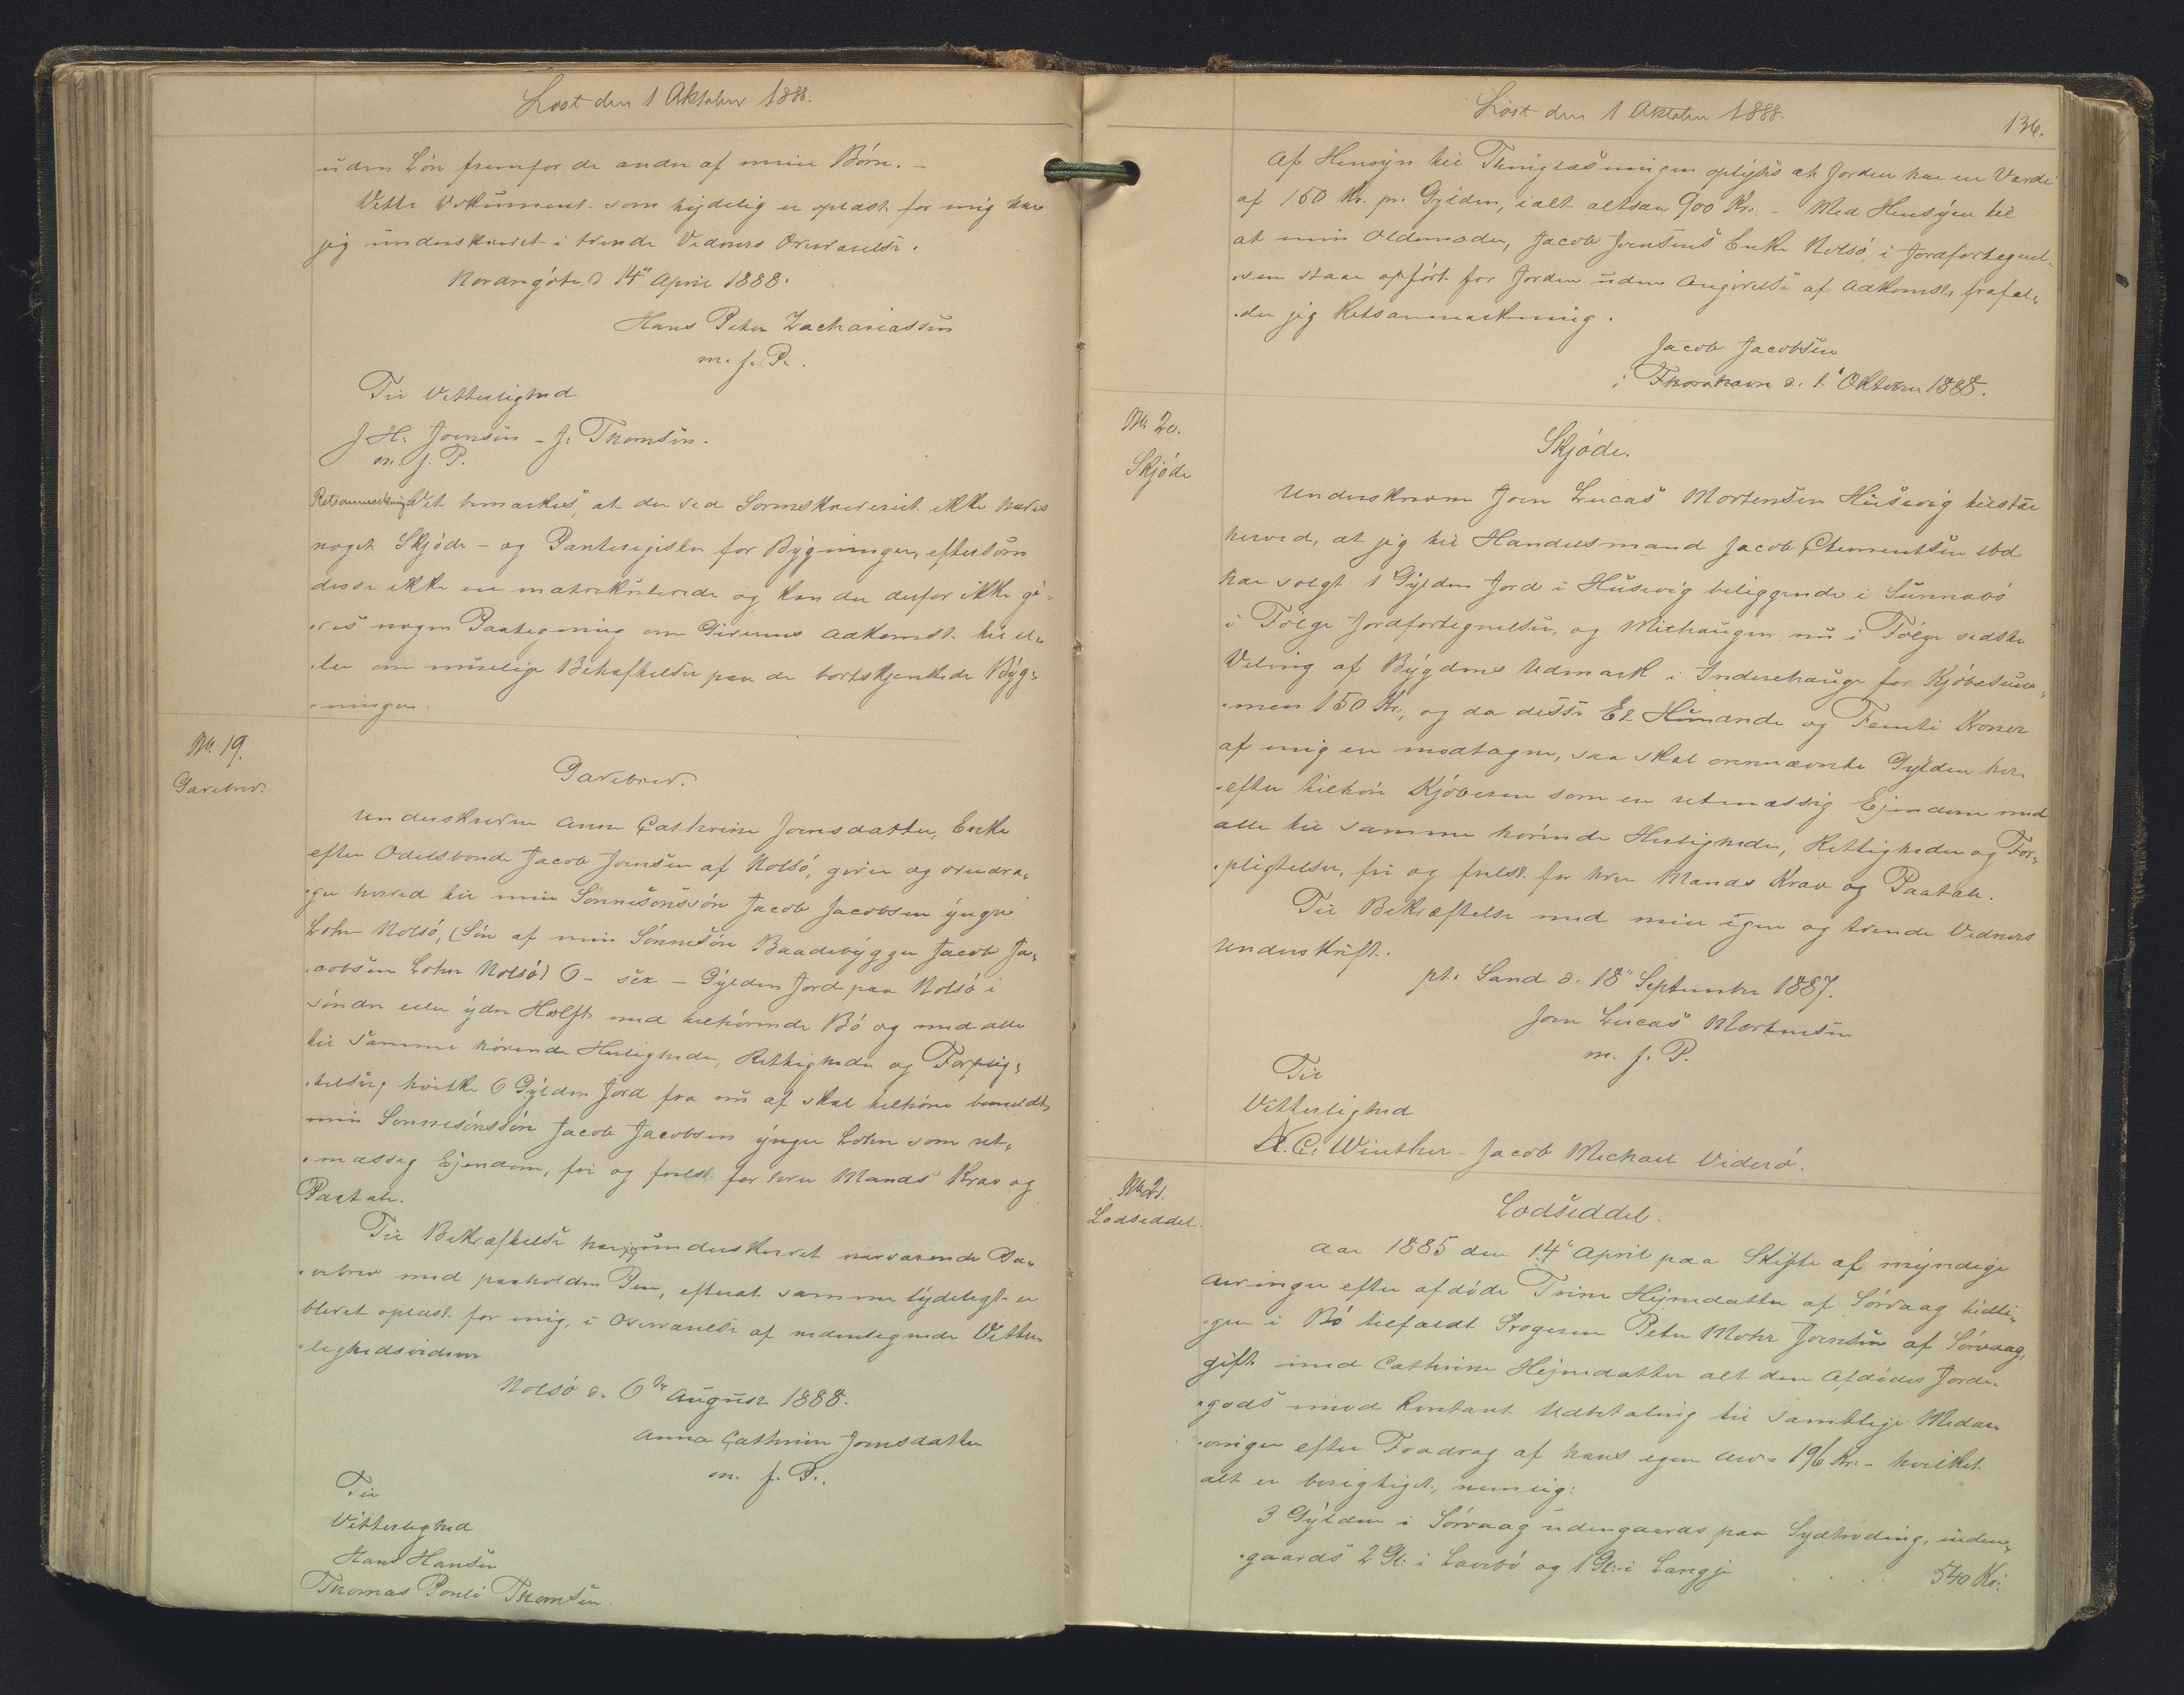 Læst den 1 Oktober 1888.
uden Løn fremfor de andre af mine Børn. –
Dette Dokument som tydelig er oplæst for mig har
jeg underskrevet i tvende Vidners Overværelse.
Nordregöte d 14de April 1888.
Hans Peter Zachariassen
m. f. P.
Til Vitterlighed
J H. Joensen – J. Thomsen.
m. f. P.
Retsanmærkning Det bemærkes, at der ved Sorenskriveriet ikke haves
noget Skjøde- og Panteregister for Bygninger, eftersom
disse ikke ere matrikulerede og kan der derfor ikke gi-
ves nogen Paategning om Giverens Adkomst til el-
ler om mulige Behæftelser paa de bortskjenkede Byg-
ninger.
No. 19.
Gavebrev.
Gavebrev.
Underskrevne Anne Cathrine Joensdatter, Enke
efter Odelsbonde Jacob Joensen af Nolsö, giver og overdra-
ger herved til min Sønnesønssøn Jacob Jacobsen yngre
Lohn Nolsö, (Søn af min Sønnesøn Baadebygger Jacob Ja-
cobsen Lohn Nolsö) 6 – sex – Gylden Jord paa Nolsö i
söndre eller ydre Hælfte med tilhörende Bö og med alle
til samme hörende Herligheder, Rettigheder og Forplig-
telser, hvilke 6 Gylden Jord fra nu af skal tilhöre bemeldte
min Sønnesønssøn Jacob Jacobsen yngre Lohn som ret-
mæssig Ejendom, fri og frelst for hver Mands Krav og
Paatale.
Til Bekræftelse har jeg underskrevet nærværende Ga-
vebrev med paaholden Pen, efterat samme tydeligt er
blevet oplæst for mig, i Overværelse af medenlignede Vitter-
lighedsvidner
Nolsö d. 6te August 1888.
Anna Cathrine Joensdatter
m. f. P.
Til
Vitterlighed
Hans Hansen
Thomas Poulí Thomsen.
Læst den 1 Oktober 1888.
136.
Af Hensyn til Thinglæsningen oplyses at Jorden har en Værdi
af 150 Kr. pr. Gylden, ialt altsaa 900 Kr. – Med Hensyn til
at min Oldemoder, Jacob Joensens Enke Nolsö, i Jordfortegnel-
sen staar opfört for Jorden uden Angivelse af Adkomst, frafal-
der jeg Retsanmærkning.
Jacob Jacobsen
i Thorshavn d. 1' Oktober 1888.
No. 20.
Skjöde
Skjöde.
Underskrevne Joen Lucas Mortensen Húsevig tilstår
herved, at jeg til Handelsmand Jacob Clementsen ibd
har solgt 1 Gylden Jord i Húsevig beliggende i Sunnabö
i Følge Jordfortegnelsen, og Mithaugen nu i Følge sidste
Deling af Bygdens Udmark i Inderehauge for Kjöbesum-
men 150 Kr., og da disse Et Hundrede og Femti Kroner
af mig er modtagne, saa skal ovennævnte Gylden her-
efter tilhöre Kjöberen som en retmæssig Ejendom med
alle til samme hörende Herligheder, Rettigheder og For-
pligtelser, fri og frelst for hver Mands Krav og Paatale.
Til Bekræftelse med min egen og tvende Vidners
Underskrift.
pt. Sand d. 18' September 1887.
Joen Lucas Mortensen
m. f. P.
Til
Vitterlighed
N. C. Winther – Jacob Michael Viderö.
No 21.
Lodseddel.
Lodseddel.
Aar 1885 den 14' April paa Skifte af myndige
Arvinger efter afdöde Trine Hejnedatter af Sörvaag tidli-
gen i Bö tilfaldt Svogeren Peter Mohr Joensen af Sörvaag,
gift med Cathrine Hejnedatter alt den Afdödes Jorde-
gods imod kontant Udbetaling til samtlige Medar-
vinger efter Fradrag af hans egen Arv – 196 Kr. – hvilket
alt er berigtiget, nemlig:
3 Gylden i Sörvaag udengaards paa Sydtroding, inden-
gaards 2 Gl: i Lavebö og 1 Gl: i Langgje . . . . 540 Kr: